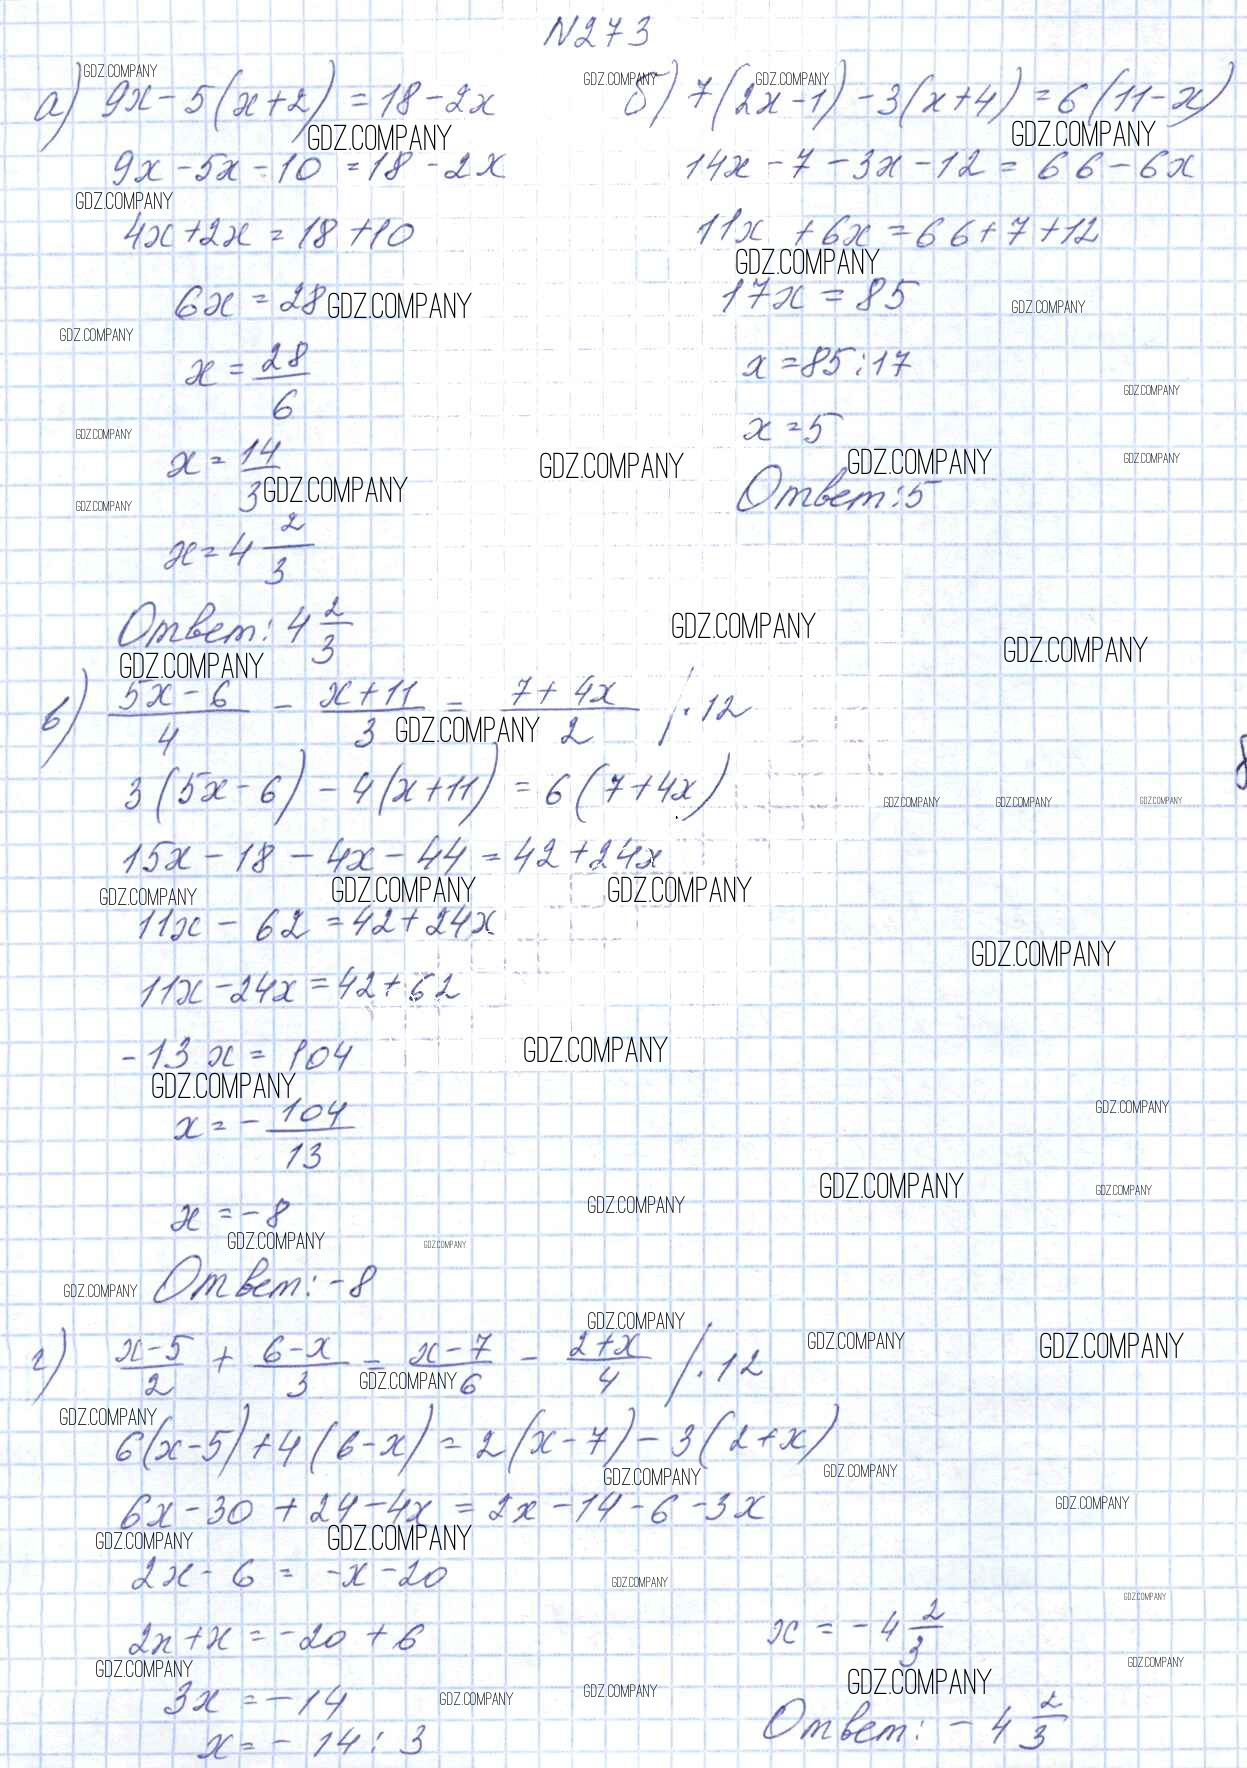 N273
а) 9x - 5(x+2) = 18 - 2x
9x - 5x - 10 = 18 - 2x
4x + 2x = 18 + 10
6x = 28
x = 28/6
x = 14/3
x = 4 2/3
Ответ: 4 2/3
б) 7(2x-1) - 3(x+4) = 6(11-x)
14x - 7 - 3x - 12 = 66 - 6x
11x + 6x = 66 + 7 + 12
17x = 85
x = 85 : 17
x = 5
Ответ: 5
в) (5x-6)/4 - (x+11)/3 = (7+4x)/2 /·12
3(5x-6) - 4(x+11) = 6(7+4x)
15x - 18 - 4x - 44 = 42 + 24x
11x - 62 = 42 + 24x
11x - 24x = 42 + 62
-13x = 104
x = - 104/13
x = -8
Ответ: -8
г) (x-5)/2 + (6-x)/3 = (x-7)/6 - (2+x)/4 /·12
6(x-5) + 4(6-x) = 2(x-7) - 3(2+x)
6x - 30 + 24 - 4x = 2x - 14 - 6 - 3x
2x - 6 = -x - 20
2x + x = -20 + 6
3x = -14
x = -14 : 3
x = -4 2/3
Ответ: -4 2/3
GDZ.COMPANY